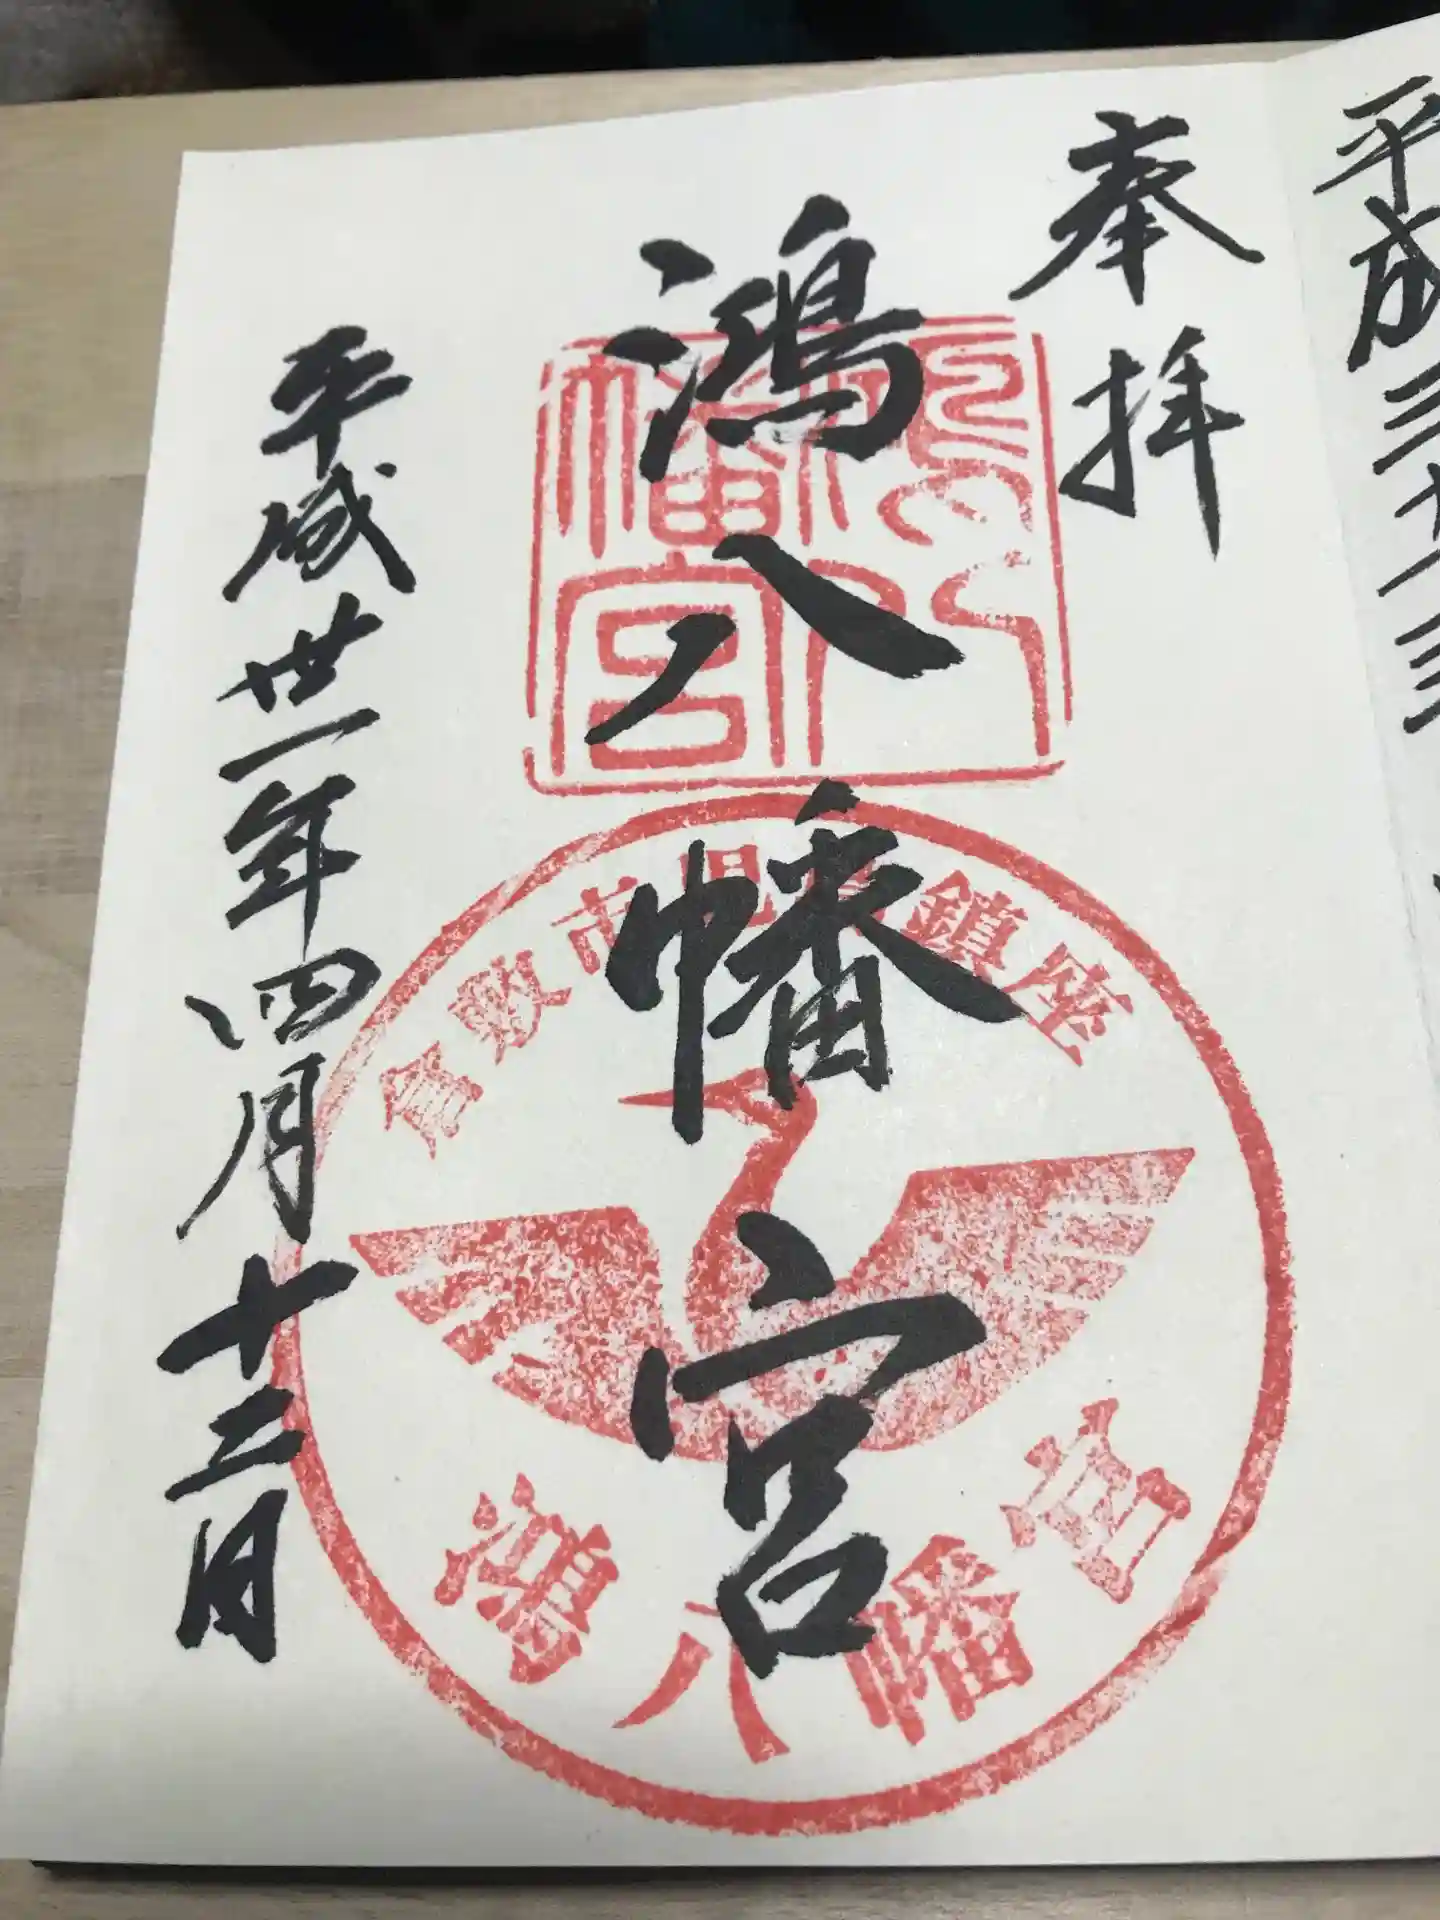 平成三十三
奉拝
鴻八幡宮
平成丗一年四月十二日
鴻八幡宮
倉敷市児島鎮座
鴻八幡宮